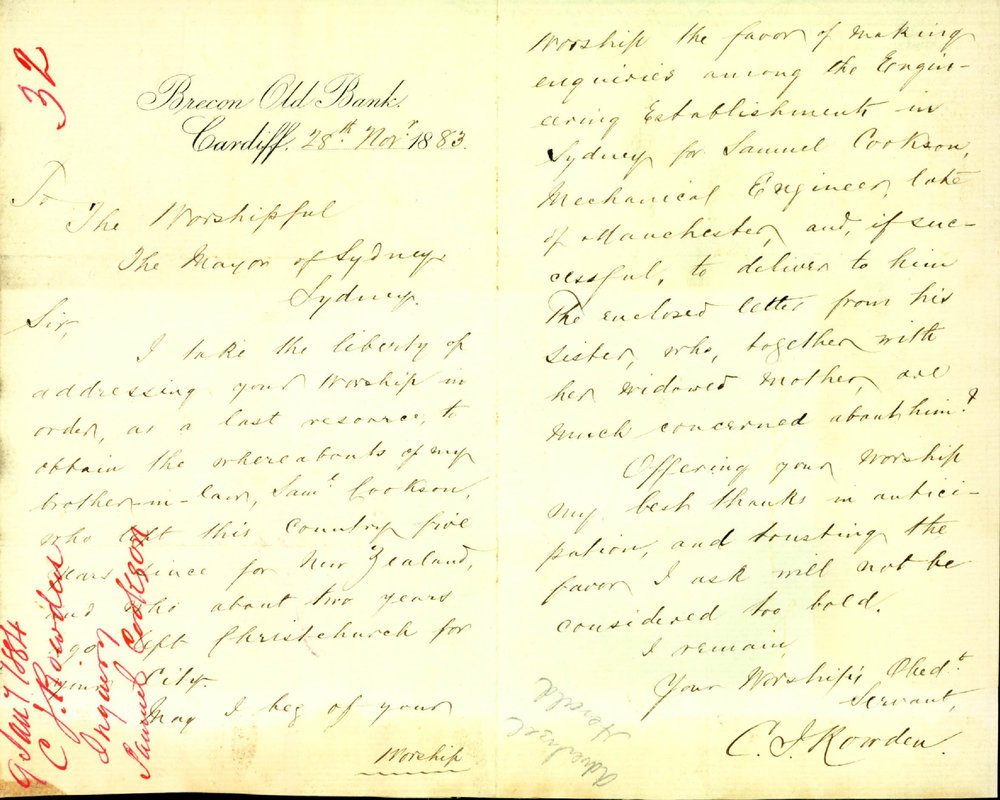 32
Brecon Old Bank
Cardiff, 28th Novr 1883.
To
The Worshipful
The Mayor of Sydney,
Sydney.
Sir,
I take the liberty of
addressing your Worship in
order, as a last resource, to
obtain the whereabouts of my
brother-in-law, Saml Cookson,
who left this country five
years since for New Zealand,
and who about two years
ago left Christchurch for
your City.
May I beg of your
Worship
Worship the favor of making
enquiries among the Engin-
eering Establishments in
Sydney for Samuel Cookson,
Mechanical Engineer, late
of Manchester, and, if suc-
cessful, to deliver to him
The enclosed letter from his
sister, who, together with
her widowed Mother, are
much concerned about him?
Offering your Worship
my best thanks in antici-
pation, and trusting the
favor I ask will not be
considered too bold.
I remain
Your Worship's Obedt
Servant,
C. J. Rowden.
9 Jan 7/884
C J. Rowden
Inquiry
Samuel Cookson
Advertise
Herald